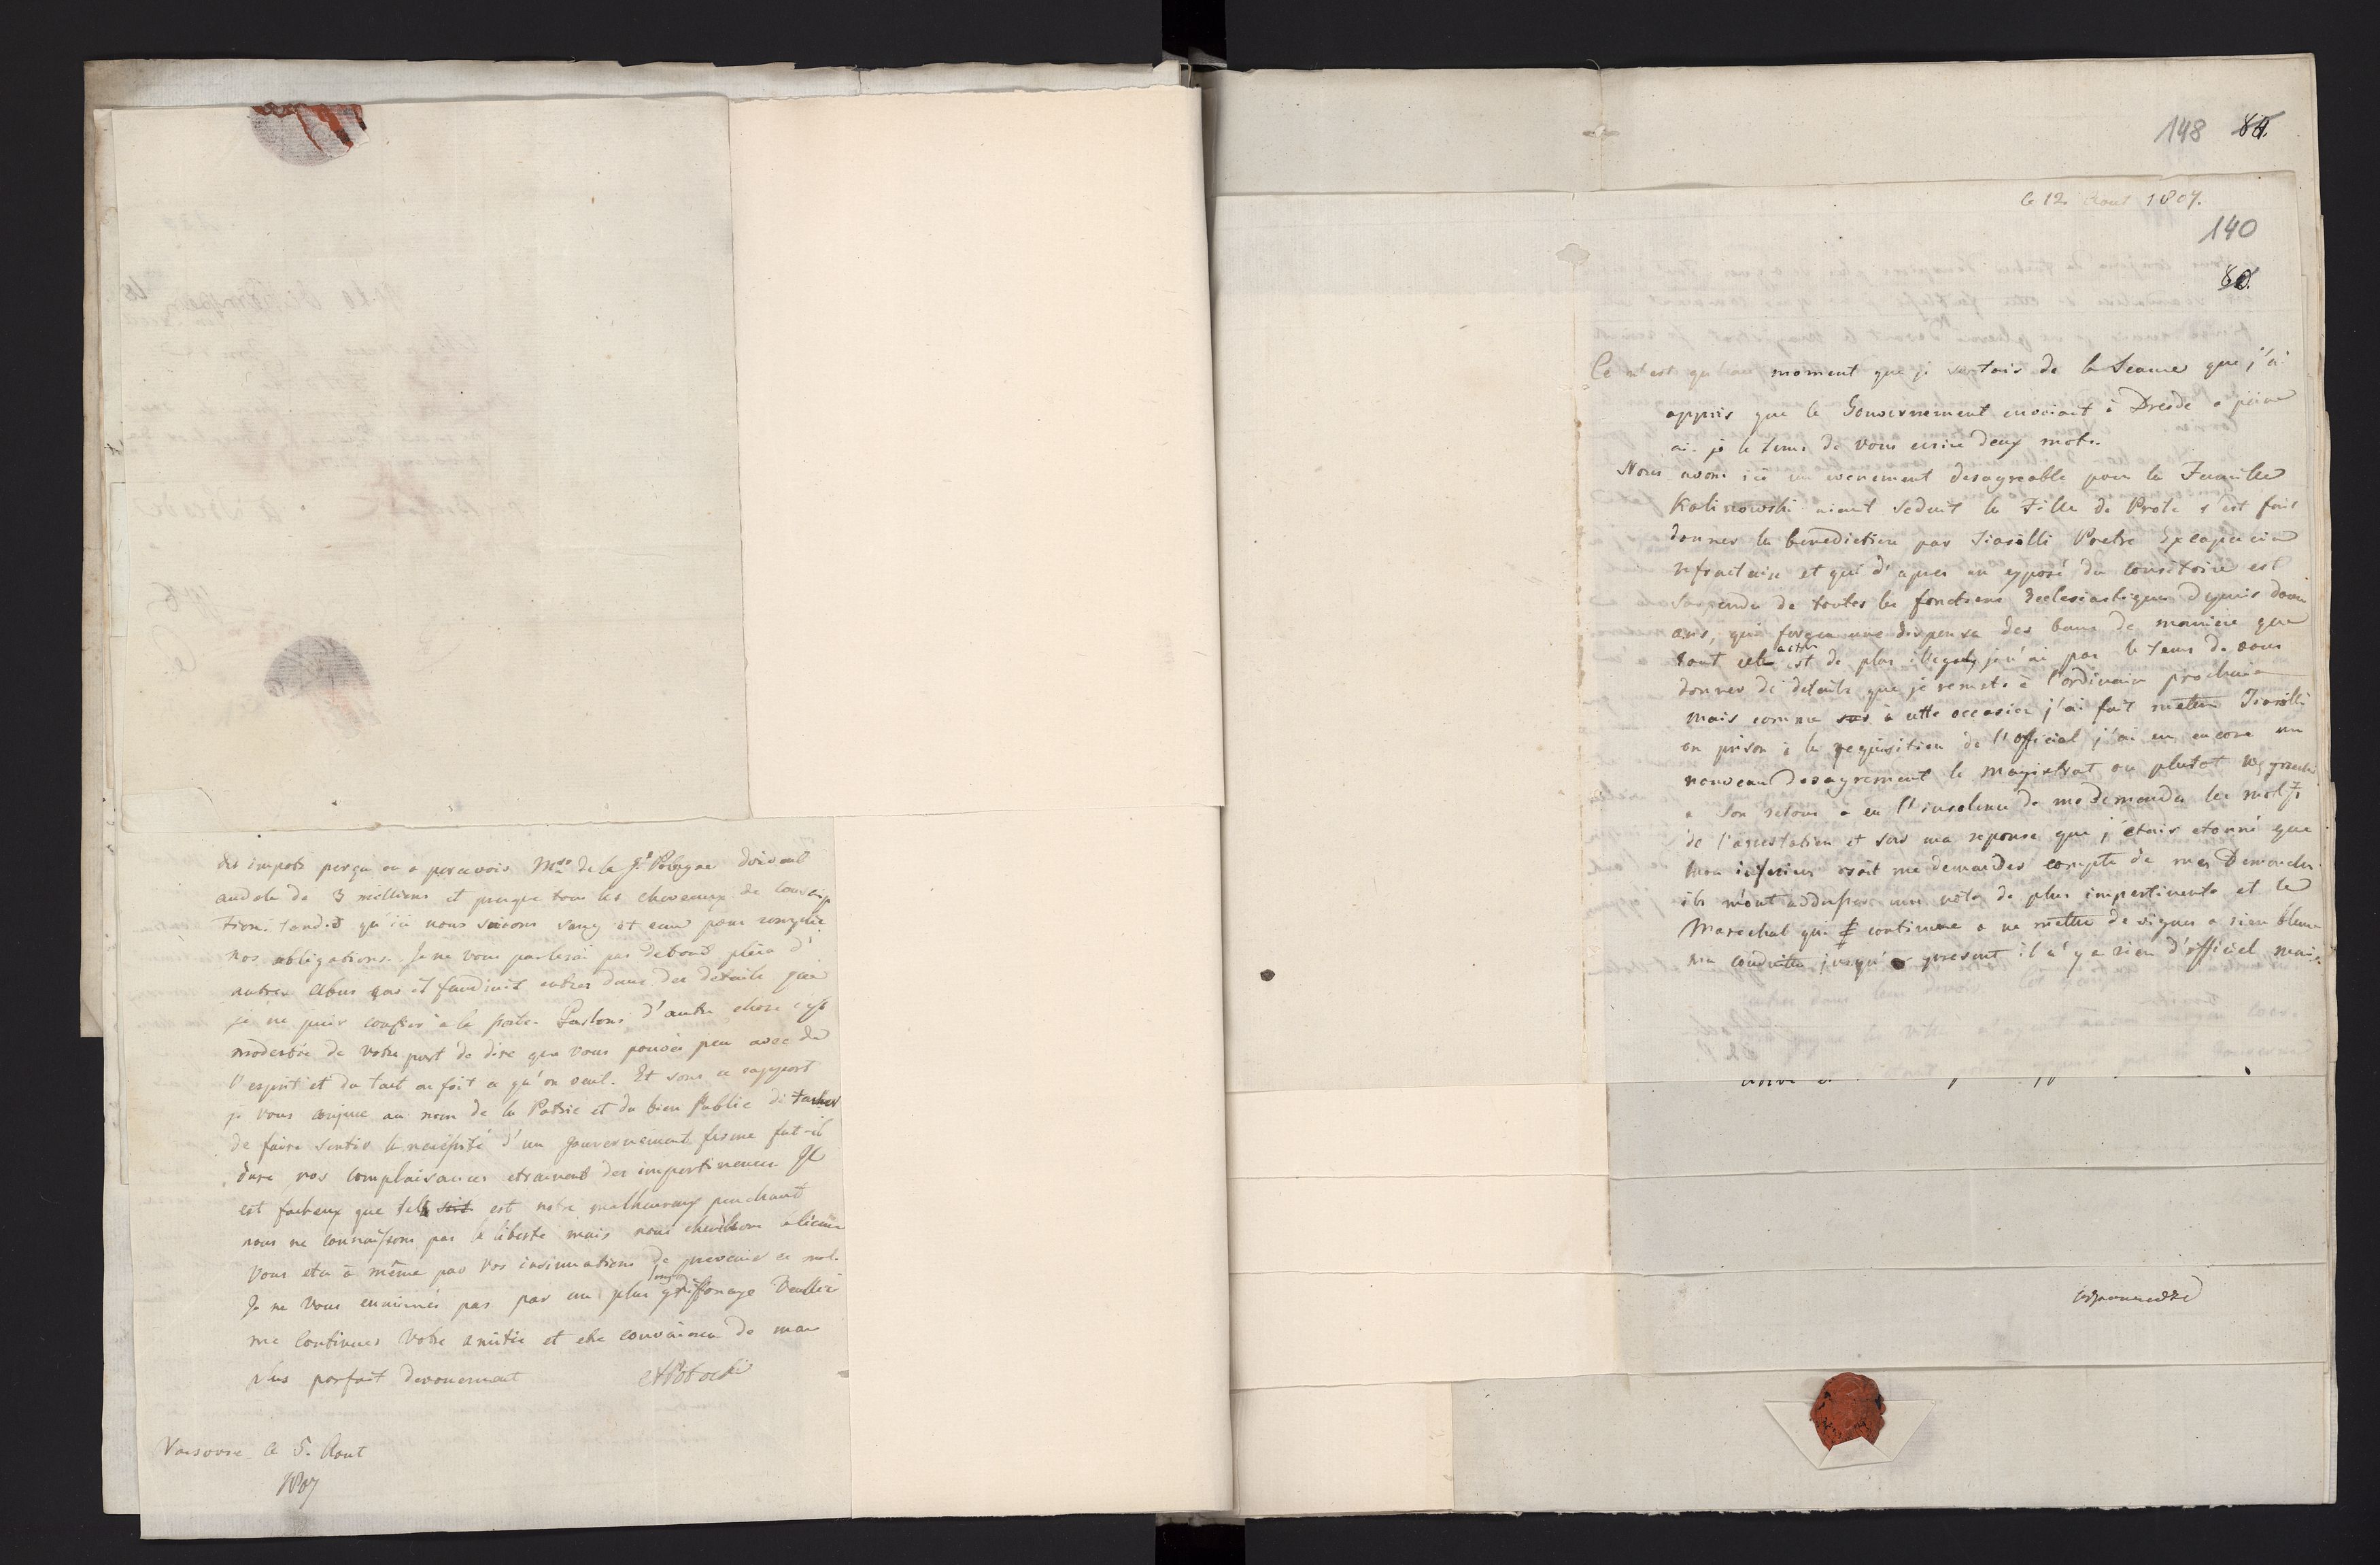 des impots perçu ou a percevoir Mde de la Pologne doivent
audela de 3 millions et presque tous les cheveaux de conscrip
tion. tandis qu'ici nous suivons sang et eau pour remplir
nos obligations. Je ne vous parlerai pas de bout plein d'
autres abus car il faudroit entrer dans des details que
je ne puis confier a la poste. Parlons d'autre chose c'est
modestie de votre part de dire que vous pouvez peu avec de
l'esprit et du tact on fait ce qu'on veut. Et sous ce rapport
je vous conjure au nom de la Patrie et du bien Public de tacher
de faire sentir la necessité d'un gouvernement ferme fut-il
dure nos complaisances des impertinences Il
est facheux que tel soit est notre malheureux penchant
nous ne connaissons pas la liberté mais nous cherchons licence
Vous etes à même par vos insinuations de prevenir ce mal.
Je ne vous ennuirai pas par un plus long griffonage Veuillez
me continuer votre amitié et etre convaincu de mon
plus parfait devouement APotocki
Varsovie le 5. Aout
1807
148 80.
le 12. Aout 1807.
140
80.
Ce n'est qu'au moment que je sortois de la Seance que j'ai
appris que le Gouvernement envoiait à Dresde a peine
ai-je le tems de vous ecrire deux mots.
Nous avons ici un evenement desagreable pour la Famille
Kalinowski aiant seduit la Fille de Prote s'est fait
donner la benediction par Pretre Excapucin
refractaire et qui d'apres un exposé du consistoire est
suspendu de toutes les fonctions Ecclesiastiques depuis deux
ans, qui forgea une dispense des bans de maniere que
tout cet acte est de plus illegal, je n'ai pas le tems de vous
donner de details que je remets à l'ordinaire prochain
mais comme sur à cette occasion j'ai fait mettre
en prison à la requisition de l'official j'ai eu encore un
nouveau desagrement le magistrat ou plutot
a son retour a eu l'insolence de me demander les motifs
de l'arrestation et sur ma reponse que j'etais etonné que
mon inferieur osait me demander compte de mes Demarches
ils m'ont addressé une note de plus impertinente et le
Marechal qui continue a ne mettre de vigueur a rien blame
ma conduite jusqu'a present il n'y a rien d'officiel mais